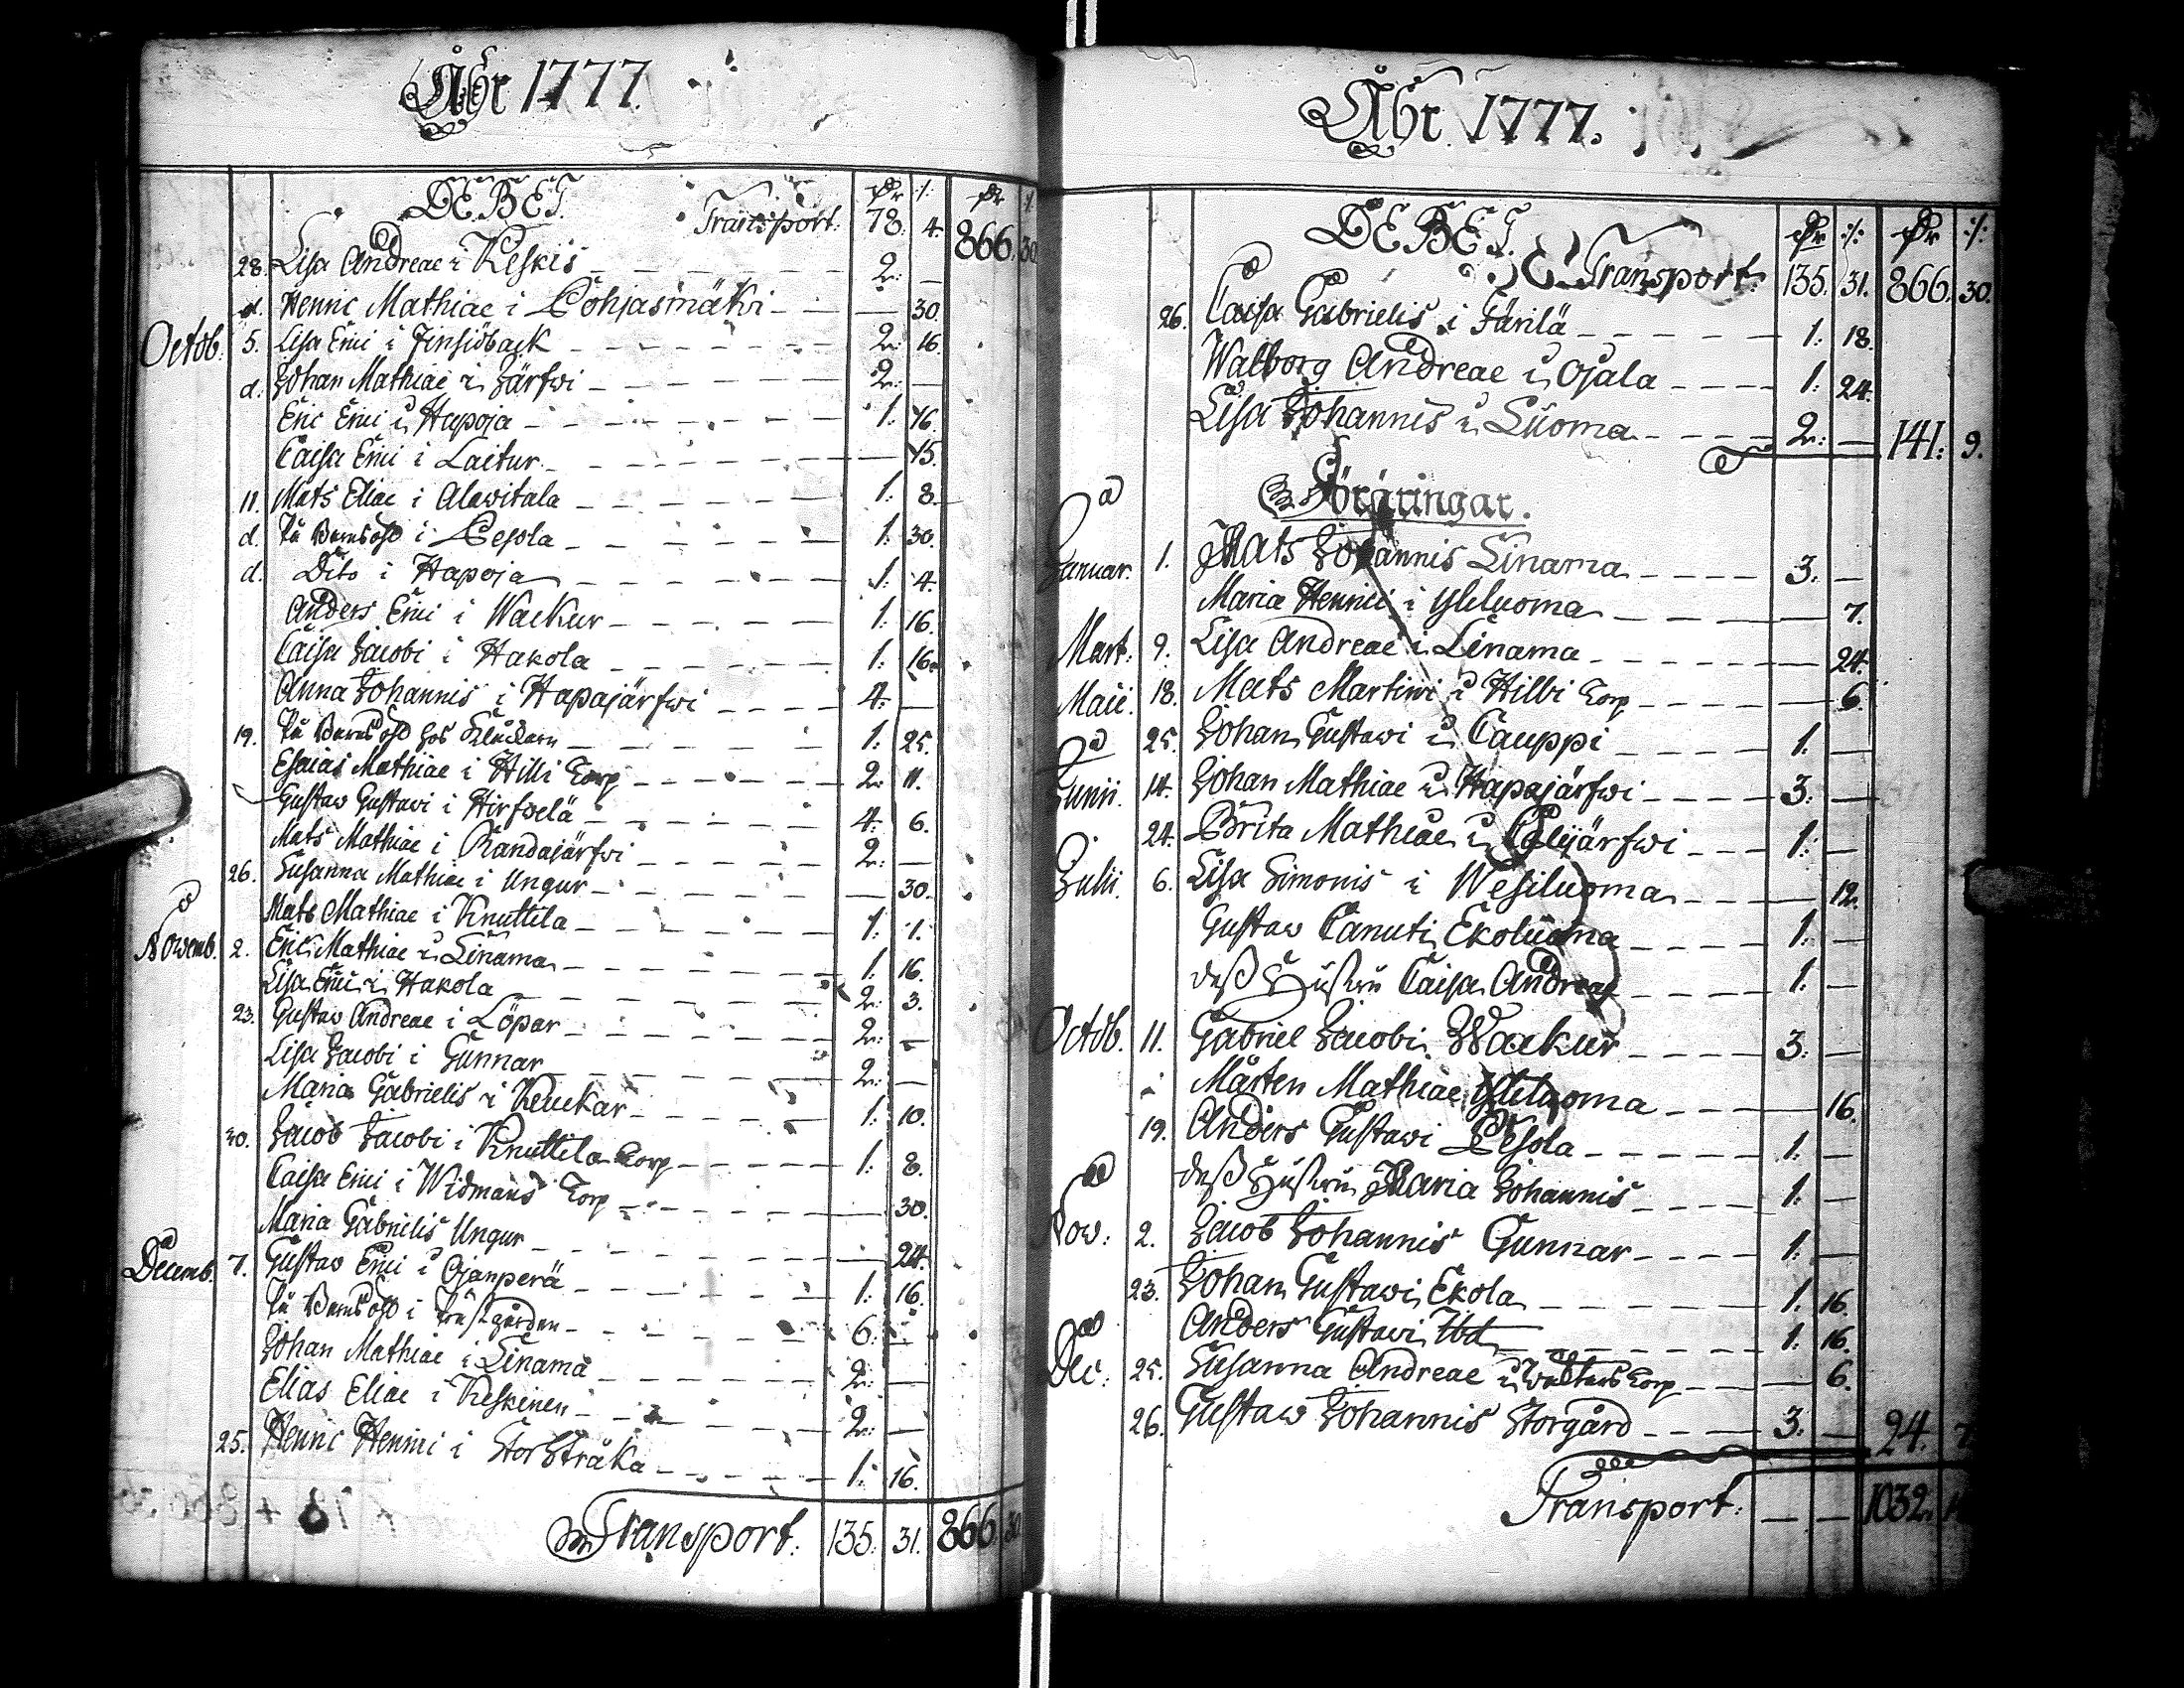 Åhr 1777.
DEBET. Dr /: Dr /:
Transport: 78: 4. 866. 30
28. Lisa Andreae i Keskis 2: —
d. Henric Mathiae i Pohjasmäki — 30.
Octob: 5. Lisa Erici i Finsiöback 2: 16.
d. Johan Mathiae i Järfwi 2: —
Eric Erici i Hapoja 1: 16.
Caisa Erici i Laitur — 15.
11. Mats Eliae i Alawitala 1: 8.
d. På Barnsöhl i Pesola 1: 30.
d. Dito i Hapoja 1: 4.
Anders Erici i Wackur 1: 16.
Caisa Jacobi i Hakola 1: 16.
Anna Johannis i Hapajärfwi 4: —
19. På Barnsöhl hos Kluckarn 1: 25.
Esaias Mathiae i Hilli Torp 2: 11.
Gustaw Gustawi i Hirfwelä 4: 6.
Mats Mathiae i Randajärfwi 2: —
26. Susanna Mathiae i Ungur — 30.
Mats Mathiae i Knuttila 1: 1.
Nowemb. 2. Eric Mathiae i Linama 1: 16.
Lisa Erici i Hakola 2: 3.
23. Gustaw Andreae i Löpar 2: —
Lisa Jacobi i Gunnar 2: —
Maria Gabrielis i Keuckar 1: 10.
30. Jacob Jacobi i Knuttila Torp 1: 8.
Caisa Erici i Widmans Torp — 30.
Maria Gabrielis Ungur — 24.
Decemb. 7. Gustaw Erici i Ojanperä 1: 16.
På Barnsöhl i Prästgården 6: —
Johan Mathiae i Linama 2: —
Elias Eliae i Keskinen 2: —
25. Henric Henrici i Storstråka 1: 16.
Transport: 135: 31. 866. 30
Åhr 1777.
DEBET. Dr /: Dr /:
Transport: 135. 31. 866. 30.
26. Caisa Gabrielis i Färilä 1: 18.
Walborg Andreae i Ojala 1: 24.
Lisa Johannis i Luoma 2: — 141: 9.
Föräringar.
Januar. 1. Mats Johannis Linama 3: —
Maria Henrici i Yliluoma — 7.
Mart: 9. Lisa Andreae i Linama — 24.
Maii. 18. Mats Martini i Hilbi Torp — 6.
25. Johan Gustawi i Cauppi 1: —
Junii. 14. Johan Mathiae i Hapajärfwi 3: —
24. Brita Mathiae i Calijärfwi 1: —
Julii. 6. Lisa Simonis i Wesiluoma — 12.
Gustaw Canuti Ekoluoma 1: —
dess Hustru Caisa Andreae 1: —
Octob. 11. Gabriel Jacobi Wackur 3: —
Mårten Mathiae Ylituoma — 16.
19. Anders Gustawi Pesola 1: —
dess Hustru Maria Johannis 1: —
Now: 2. Jacob Johannis Gunnar 1: —
23. Johan Gustawi Ekola 1: 16.
Anders Gustawi Ibd 1: 16.
Dec: 25. Susanna Andreae i Walters Torp — 6.
26. Gustaw Johannis Storgård 3: — 24. 7
Transport: — — 1032: